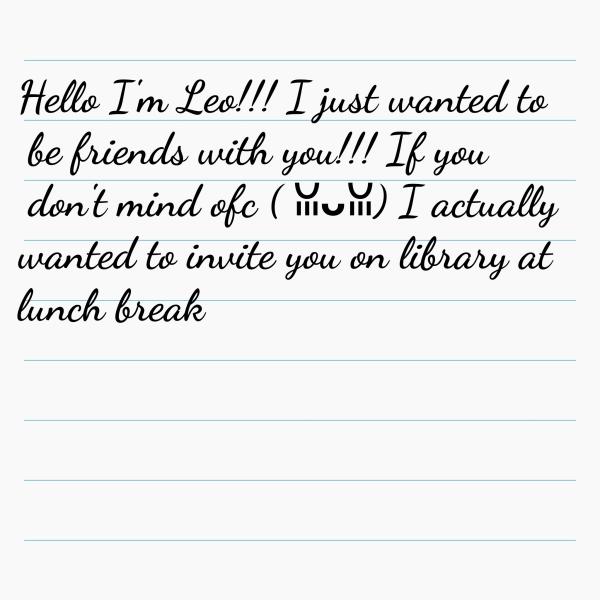 Hello I'm Leo!!! I just wanted to
be friends with you!!! If you
don't mind ofc ( ) I actually
wanted to invite you on library at
lunch break